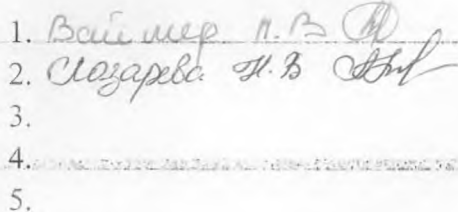 1. Ваймер Н. В
2. Слозарева Н. В
3.
4.
5.